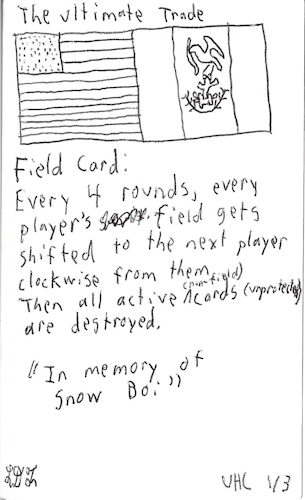 The Ultimate Trade
Field Card:
Every 4 rounds, every
player's field gets
shifted to the next player
clockwise from them.
Then all active (non-field) cards (unprotected)
are destroyed.
"In memory of
Snow Boi"
UHC 1/3